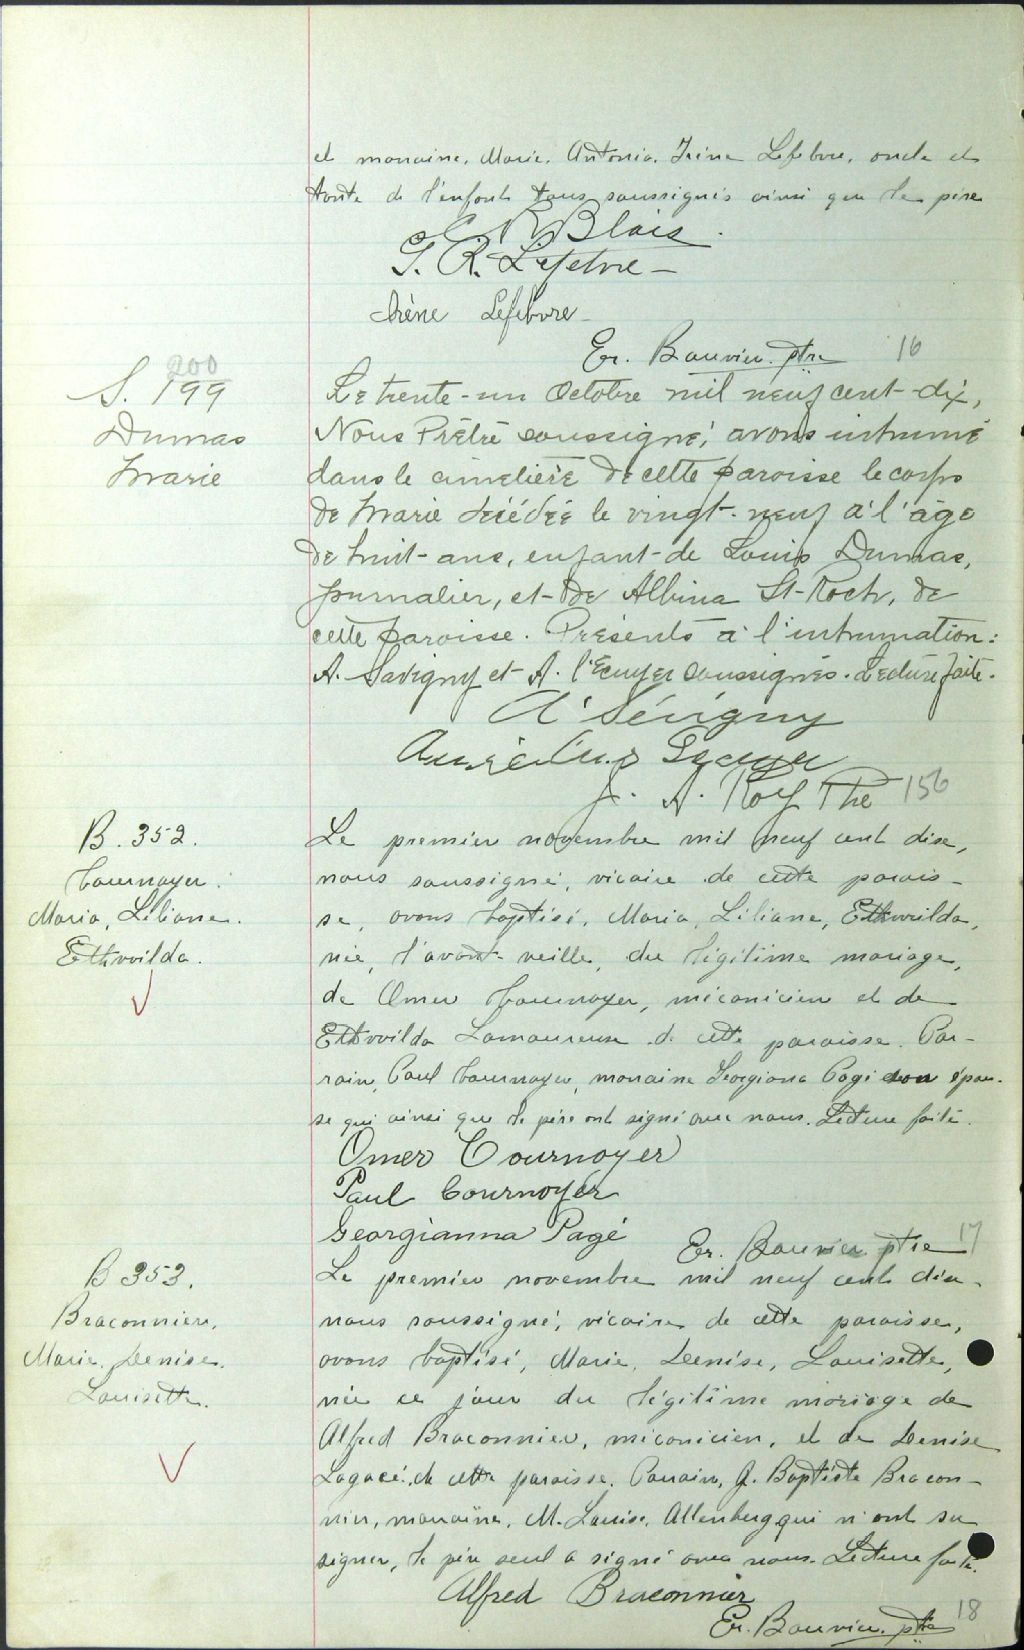 et marraine, Marie, Antonia, Irène Lefebvre, oncle et
tante de l'enfant tous soussignés ainsi que le père
R Blais.
G. R. Lefebvre -
Irène Lefebvre -
Er. Bouvier ptre 16
200
S. 199
Dumas
Marie
Le trente-un Octobre mil neuf cent-dix,
Nous Prêtre soussigné, avons inhumé
dans le cimetière de cette paroisse le corps
de Marie décédée le vingt-neuf à l'âge
de huit-ans, enfant-de Louis Dumas,
journalier, et-de Albina St-Roch, de
cette paroisse. Présents à l'inhumation:
A. Savigny et A. l'Ecuyer soussignés. Lecture faite.
A Sévigny
J. A. Roy Ptre 156
B. 352.
Cournoyer.
Maria, Liliane.
Ethwilda.
Le premier novembre mil neuf cent dise,
nous soussigné, vicaire de cette parois-
se, avons baptisé, Maria, Liliane, Ethwilda,
née, l'avant-veille, du légitime mariage,
de Omer Cournoyer, mécanicien et de
Ethwilda Lamoureuse de cette paroisse. Par-
rain, Paul Cournoyer, marraine Georgiana Pagé son épou-
se qui ainsi que le père ont signé avec nous. Lecture faite.
Omer Cournoyer
Paul Cournoyer
Georgianna Pagé
Er. Bouvier ptre 17
B 353.
Braconnier,
Marie, Denise,
Louisette.
Le premier novembre mil neuf cent dix,
nous soussigné, vicaire de cette paroisse,
avons baptisé, Marie, Denise, Louisette,
née ce jour du légitime mariage de
Alfred Braconnier, mécanicien, et de Denise
Lagacé, de cette paroisse. Parrain, J. Baptiste Bracon-
nier, marraine, M. Louise, Allenberg qui n'ont su
signer, le père seul a signé avec nous. Lecture faite.
Alfred Braconnier
Er. Bouvier ptre 18